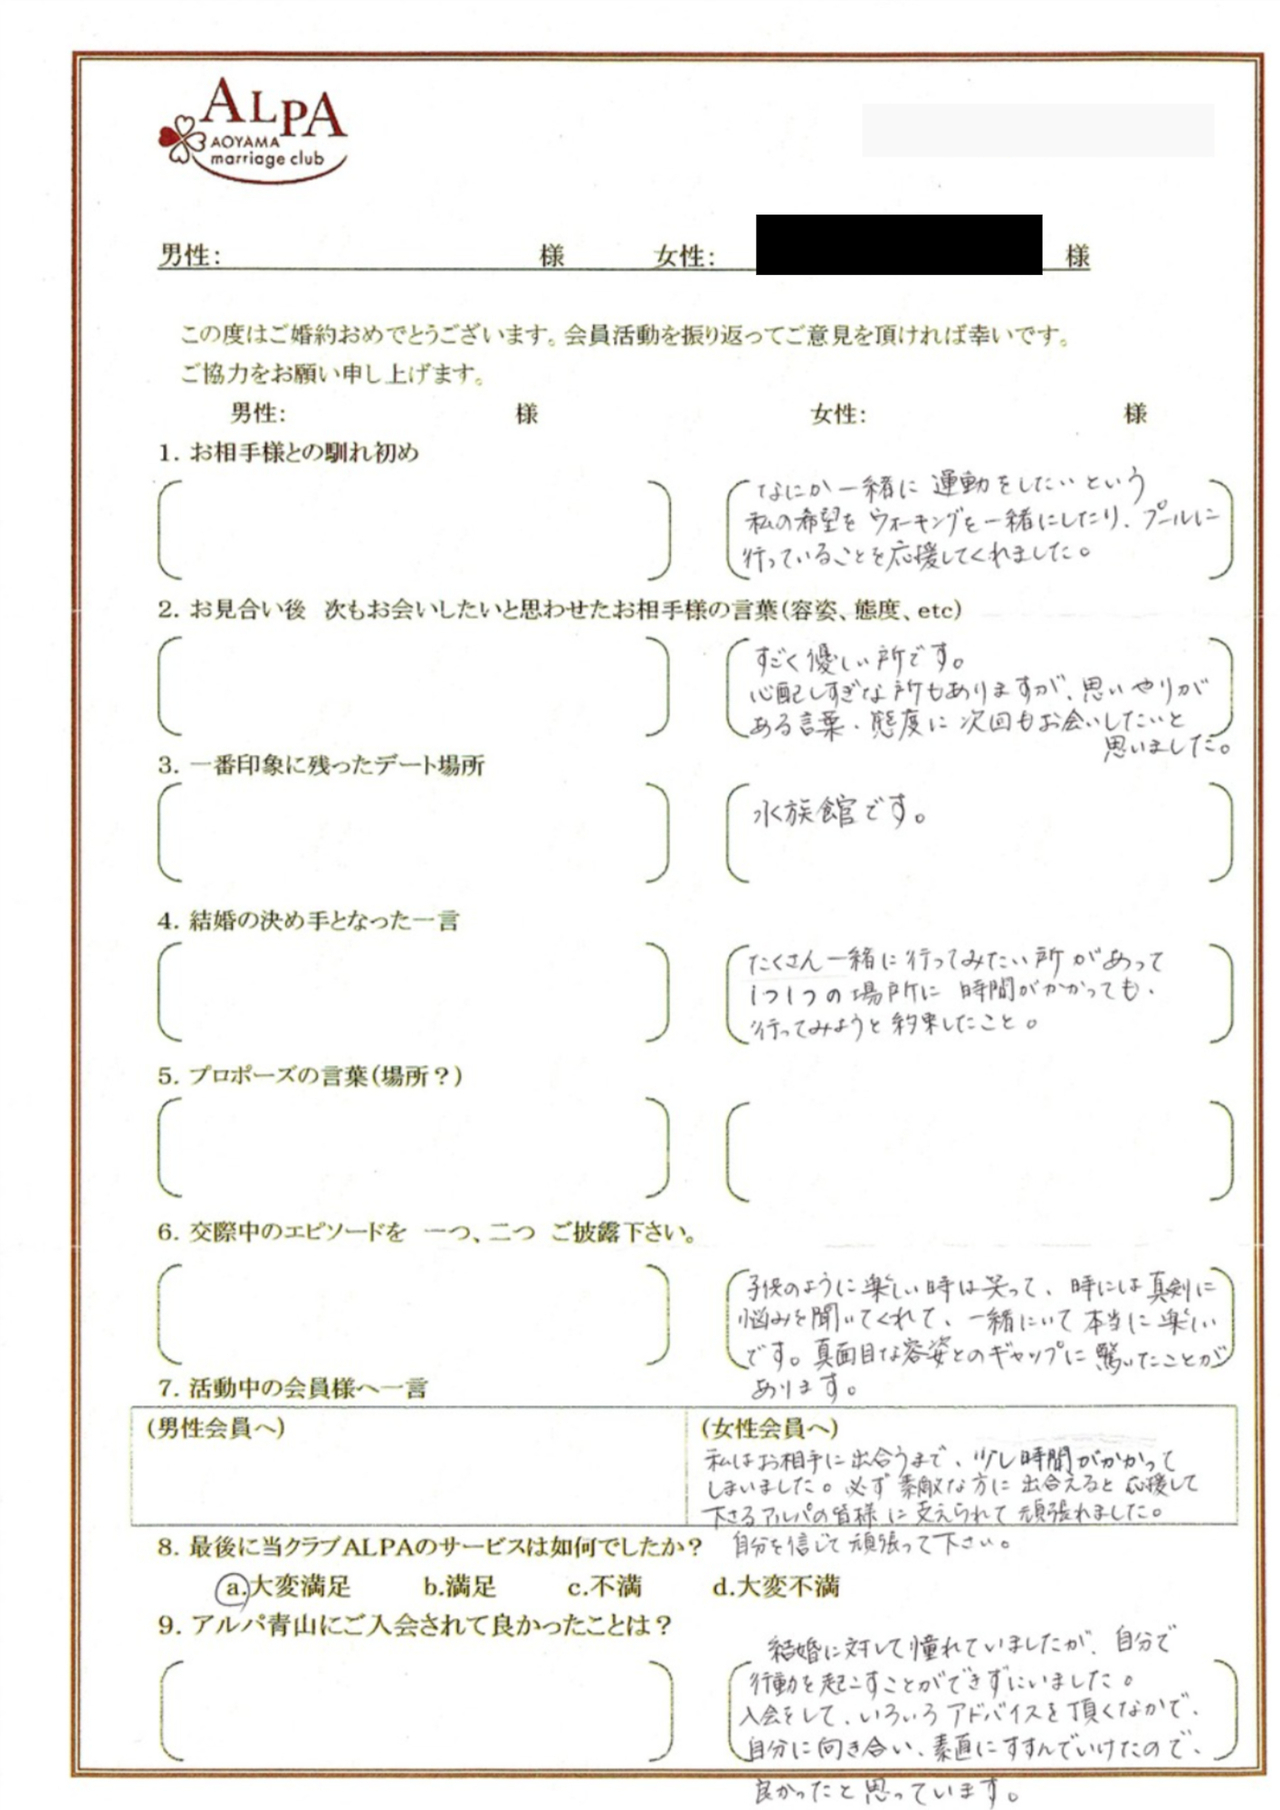 ALPA
AOYAMA
marriage club
男性: 様 女性: 様
この度はご婚約おめでとうございます。会員活動を振り返ってご意見を頂ければ幸いです。
ご協力をお願い申し上げます。
男性: 様 女性: 様
1. お相手様との馴れ初め
なにか一緒に運動をしたいという
私の希望をウォーキングを一緒にしたり、プールに
行っていることを応援してくれました。
2. お見合い後 次もお会いしたいと思わせたお相手様の言葉(容姿、態度、etc)
すごく優しい所です。
心配しすぎな所もありますが、思いやりが
ある言葉・態度に次回もお会いしたいと
思いました。
3. 一番印象に残ったデート場所
水族館です。
4. 結婚の決め手となった一言
たくさん一緒に行ってみたい所があって
1つ1つの場所に時間がかかっても、
行ってみようと約束したこと。
5. プロポーズの言葉(場所?)
6. 交際中のエピソードを 一つ、二つ ご披露下さい。
子供のように楽しい時は笑って、時には真剣に
悩みを聞いてくれて、一緒にいて本当に楽しい
です。真面目な容姿とのギャップに驚いたことが
あります。
7. 活動中の会員様へ一言
(男性会員へ) (女性会員へ)
私はお相手に出合うまで、少し時間がかかって
しまいました。必ず素敵な方に出合えると応援して
下さるアルパの皆様に支えられて頑張れました。
自分を信じて頑張って下さい。
8. 最後に当クラブALPAのサービスは如何でしたか?
a.大変満足 b.満足 c.不満 d.大変不満
9. アルパ青山にご入会されて良かったことは?
結婚に対して憧れていましたが、自分で
行動を起こすことができずにいました。
入会をして、いろいろアドバイスを頂くなかで、
自分に向き合い、素直にすすんでいけたので、
良かったと思っています。